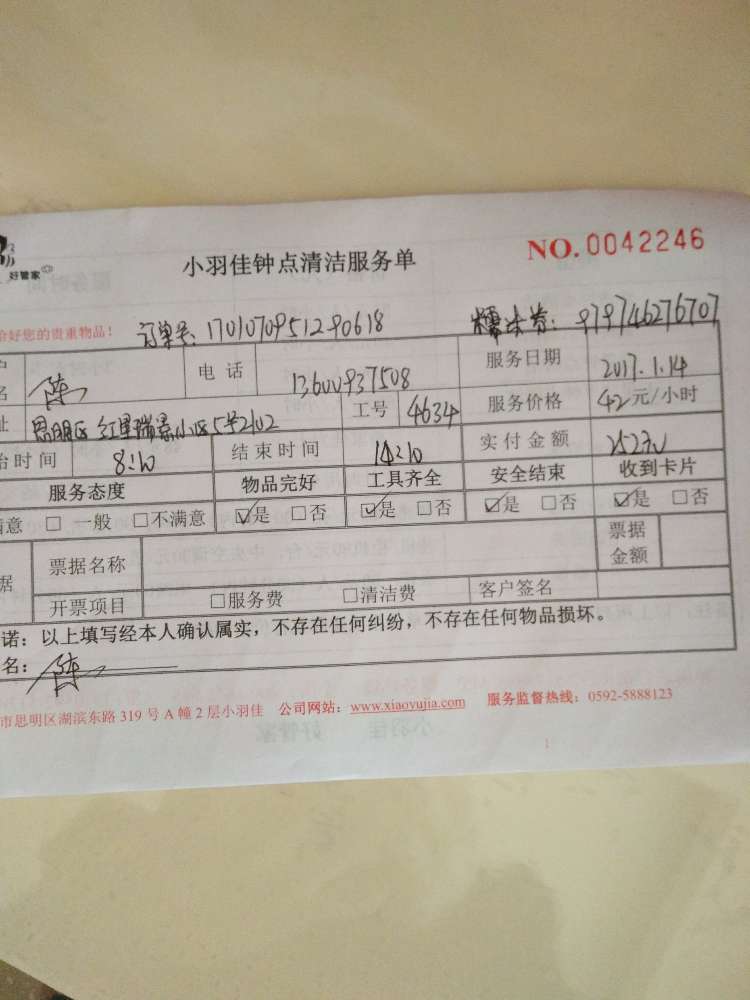 好管家
小羽佳钟点清洁服务单
NO. 0042246
您的贵重物品！ 订单号：1701070951290618 糯米券：979746276707
名 陈 电 话 服务日期 2017.1.14
址 思明区 小区5号2102 工号 4634 服务价格 42元/小时
时 间 8:10 结 束 时 间 14:10 实 付 金 额 252元
服务态度 物品完好 工具齐全 安全结束 收到卡片
意 □ 一般 □不满意 ☑是 □否 ☑是 □否 ☑是 □否 ☑是 □否
据 票据名称 票据金额
开票项目 □服务费 □清洁费 客户签名
诺：以上填写经本人确认属实，不存在任何纠纷，不存在任何物品损坏。
名：陈
市思明区湖滨东路 319 号 A 幢 2 层小羽佳 公司网站：www.xiaoyujia.com 服务监督热线：0592-5888123